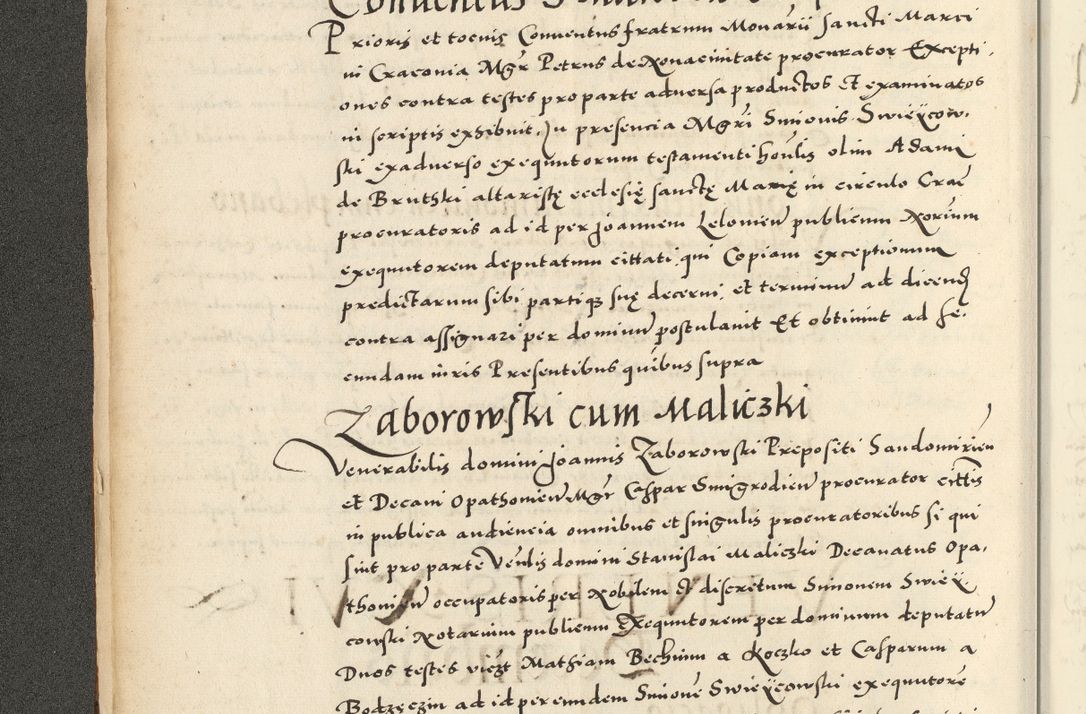 Prioris et tocius Conventus fratrum Monarii sancti Marci
in Cracovia Mgr Petrus de Nouacivitate procurator Excepti,
ones contra testes pro parte adversa productos Et examinatos
in scriptis exhibuit, In presencia Mgri Simonis Swieÿcow,
ski ex adverso exequutorum testamenti honlis olim Adami
de Brutski altaristę ecclesię sanctę Marię in circulo Crac
procuratoris ad id per Joannem Lelowien publicum Norium
exequutorem deputatum cittati, qui Copiam exceptionum
predictarum sibi partiq suę decerni, et terminum ad dicend
contra assignari per dominum postulavit Et obtinuit ad fe,
cundam iuris Presentibus quibus supra
Zaborowski cum Maliczki
Venerabilis domini Joannis Zaborowski Prepositi Sandomirien
et Decani Opathovien Mgr Caspar Smigrodien procurator cittis
in publica audiencia omnibus et singulis procuratoribus si qui
sint pro parte Venlis domini Stanislai Maliczki Decanatus Opa,
thovien occupatoris per Nobilem et discretum Simonem Swieÿ
cowski Notarium publicum Exequutorem per dominum deputatum
Duos testes vicz Mathiam Bechum a Koczko et Casparum a
Bodzęczin ad id per eundem Simone Swieÿcowski exequutore